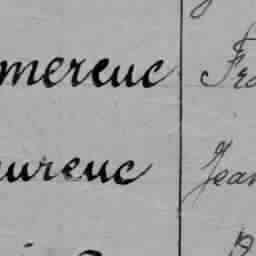 mereuc Fra
ureuc Jean